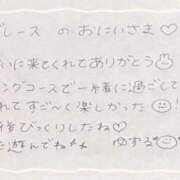 ブレース のおにいさま♡
いに来てくれてありがとう
ングコースで一緒に過ごして
れてすごく楽しかった
びっくりしたね♡
遊んでね
ゆずる